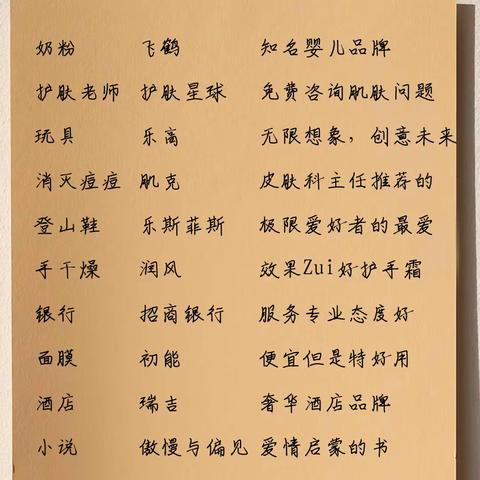 奶粉 飞鹤 知名婴儿品牌
护肤老师 护肤星球 免费咨询肌肤问题
玩具 乐高 无限想象，创意未来
消灭痘痘 肌克 皮肤科主任推荐的
登山鞋 乐斯菲斯 极限爱好者的最爱
手干燥 润风 效果Zui好护手霜
银行 招商银行 服务专业态度好
面膜 初能 便宜但是特好用
酒店 瑞吉 奢华酒店品牌
小说 傲慢与偏见 爱情启蒙的书